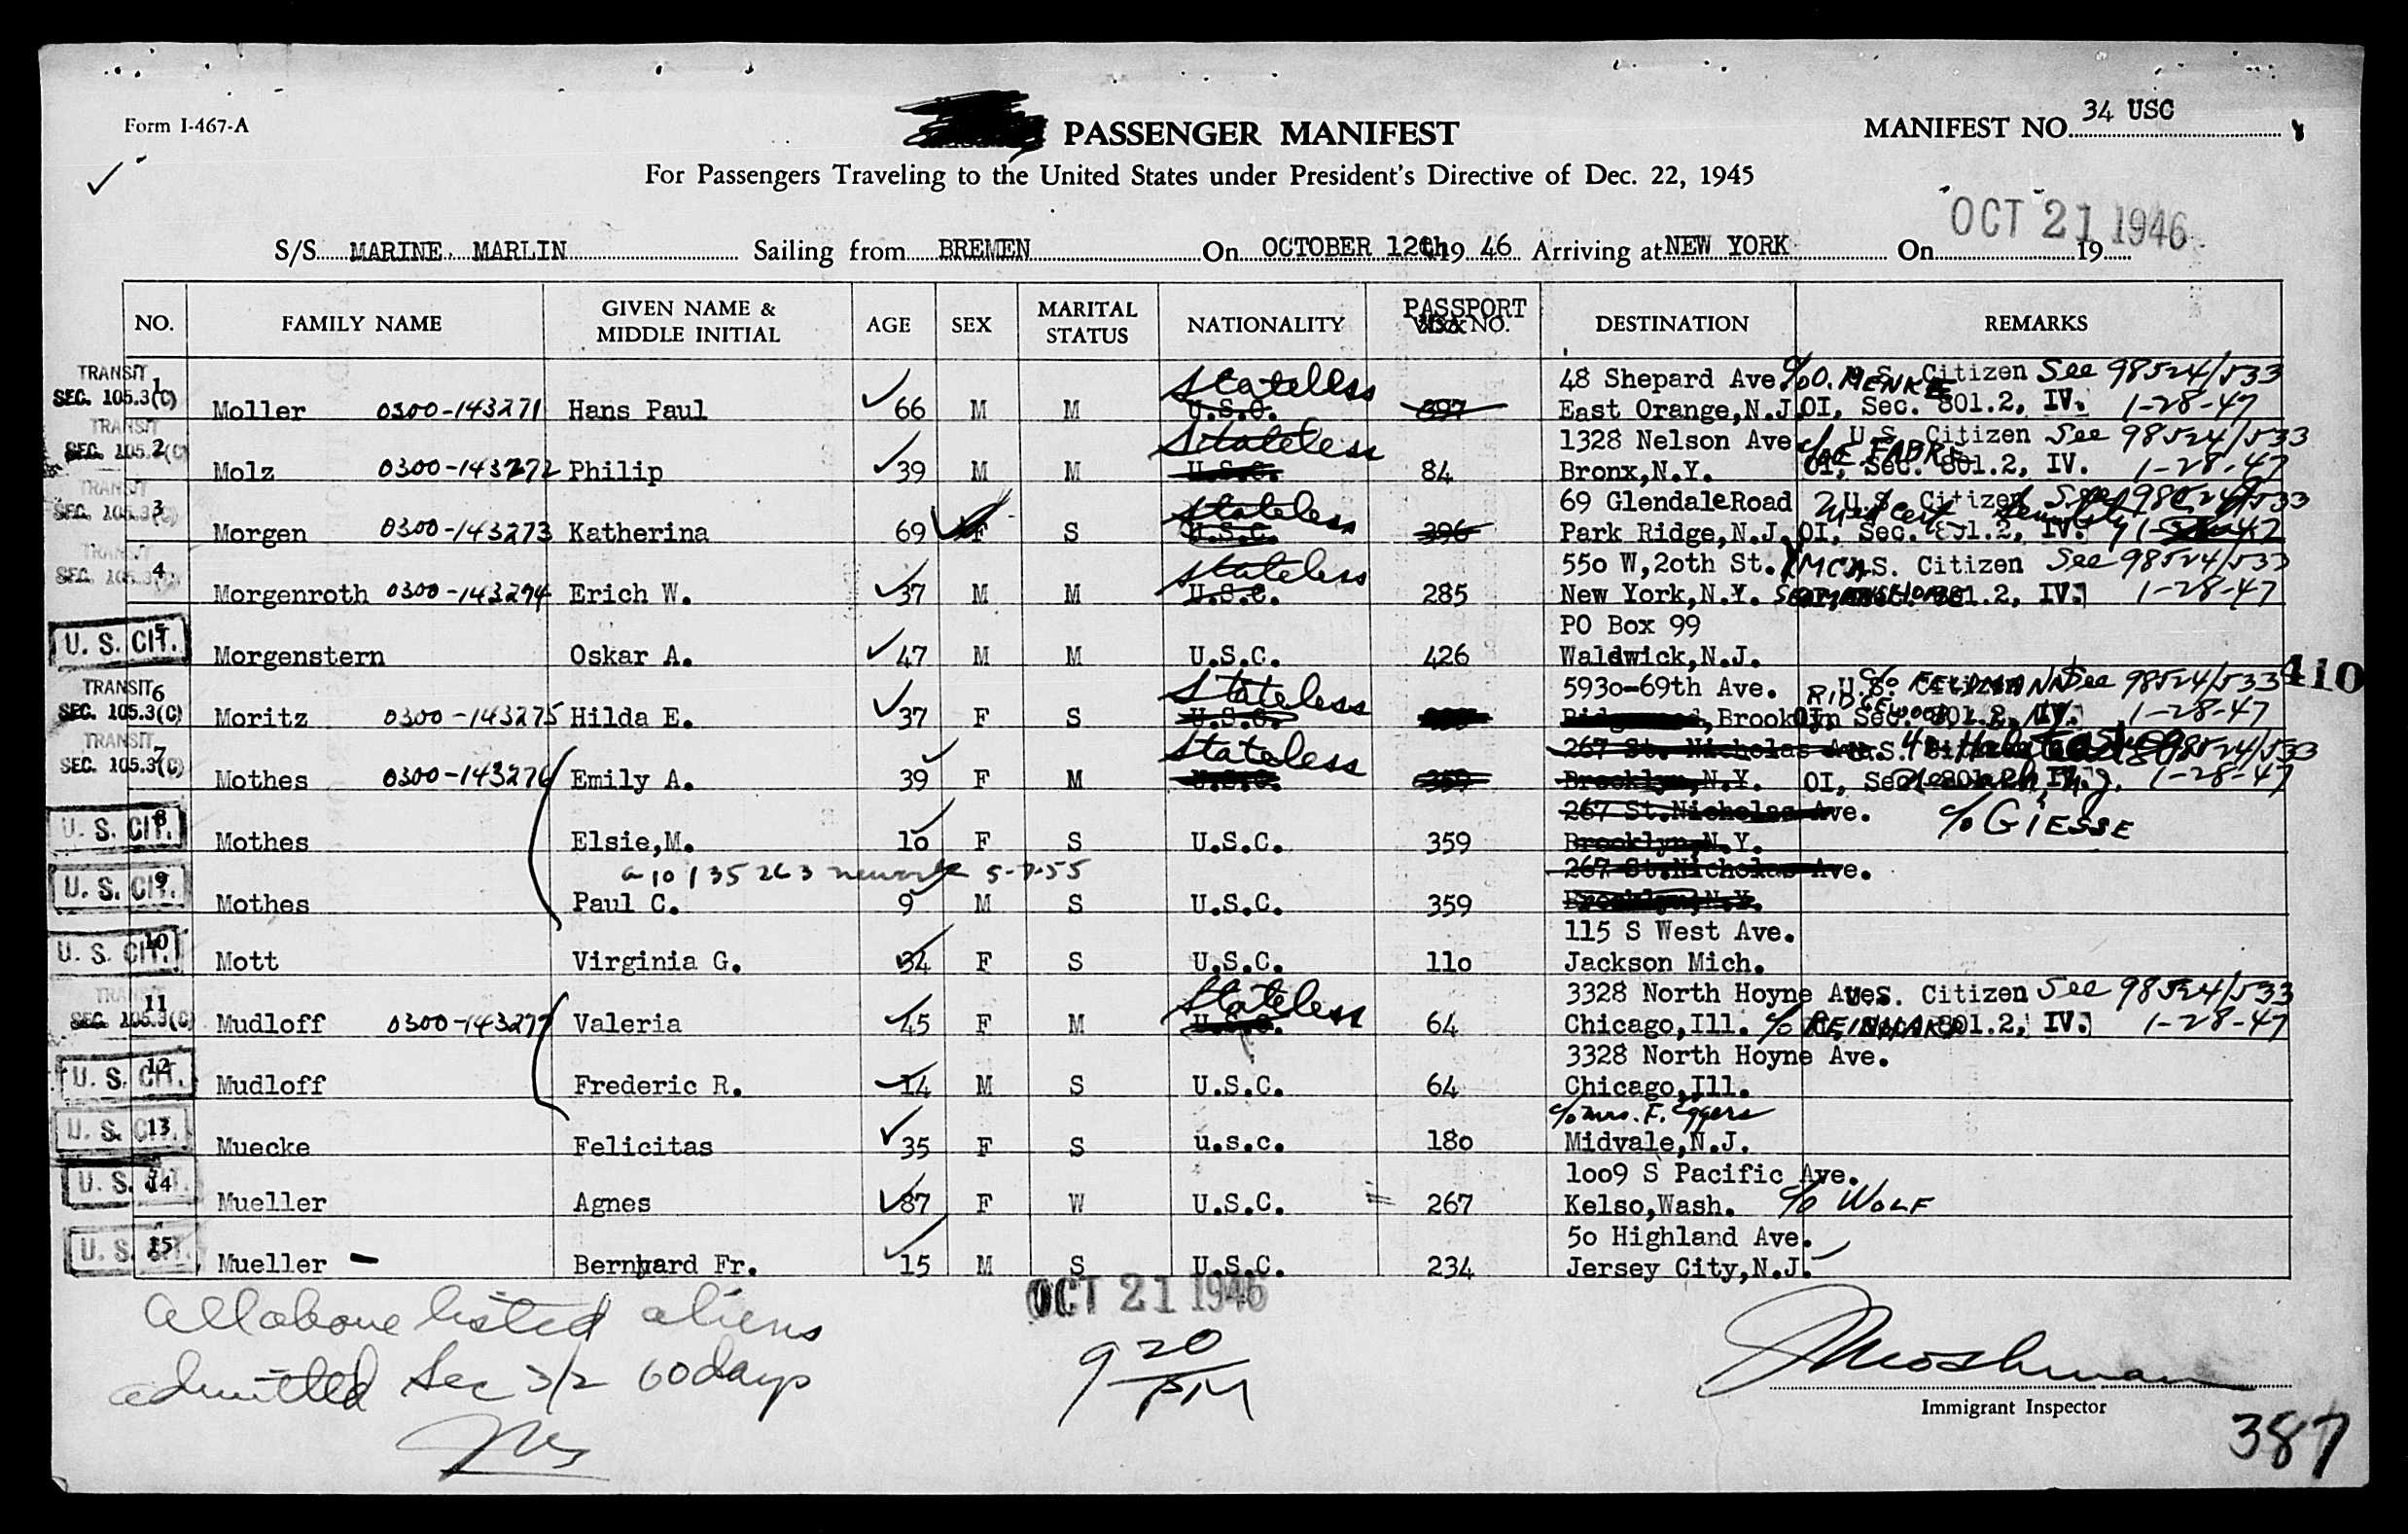 Form I-467-A
PASSENGER MANIFEST
MANIFEST NO. 34 USC
For Passengers Traveling to the United States under President's Directive of Dec. 22, 1945
OCT 21 1946
S/S MARINE MARLIN Sailing from BREMEN On OCTOBER 12th 19 46 Arriving at NEW YORK On 19
NO. FAMILY NAME GIVEN NAME & MIDDLE INITIAL AGE SEX MARITAL STATUS NATIONALITY PASSPORT NO. DESTINATION REMARKS
TRANSIT 1 stateless 48 Shepard Ave. c/o O. MENKE U.S. Citizen See 98524/533
SEC. 105.3(C) Moller 0300-143271 Hans Paul 66 M M U.S.C. 397 East Orange,N.J. OI, Sec. 801.2, IV. 1-28-47
TRANSIT 2 Stateless 1328 Nelson Ave c/o E. U.S. Citizen See 98524/533
SEC. 105.3(C) Molz 0300-143272 Philip 39 M M U.S.C. 84 Bronx,N.Y. OI, Sec. 801.2, IV. 1-28-47
TRANSIT 3 stateless 69 Glendale Road U.S. Citizen See 98524/533
SEC. 105.3(C) Morgen 0300-143273 Katherina 69 F S U.S.C. 396 Park Ridge,N.J. OI, Sec. 801.2, IV. 1-28-47
TRANSIT 4 stateless 55o W,2oth St. U.S. Citizen See 98524/533
SEC. 105.3(C) Morgenroth 0300-143274 Erich W. 37 M M U.S.C. 285 New York,N.Y. 801.2, IV. 1-28-47
U. S. CIT. 5 PO Box 99
Morgenstern Oskar A. 47 M M U.S.C. 426 Waldwick,N.J.
TRANSIT 6 Stateless 593o-69th Ave. U.S. c/o FELDMANN See 98524/533 410
SEC. 105.3(C) Moritz 0300-143275 Hilda E. 37 F S U.S.C. Brooklyn RIDGEWOOD OI, Sec. 801.2, IV. 1-28-47
TRANSIT 7 Stateless 267 St. Nicholas Ave. U.S. 98524/533
SEC. 105.3(C) Mothes 0300-143276 Emily A. 39 F M U.S.C. 359 Brooklyn,N.Y. OI, Sec. 801.2, IV. 1-28-47
U. S. CIT. 8 267 St.Nicholas Ave. c/o GIESSE
Mothes Elsie,M. 1o F S U.S.C. 359 Brooklyn,N.Y.
a 10 135 263 newark 5-7-55
U. S. CIT. 9 267 St.Nicholas Ave.
Mothes Paul C. 9 M S U.S.C. 359 Brooklyn,N.Y.
U. S. CIT. 10 115 S West Ave.
Mott Virginia G. 34 F S U.S.C. 11o Jackson Mich.
TRANSIT 11 Stateless 3328 North Hoyne Ave. U.S. Citizen See 98524/533
SEC. 105.3(C) Mudloff 0300-143277 Valeria 45 F M U.S.C. 64 Chicago,Ill. c/o 801.2, IV. 1-28-47
U. S. CIT. 12 3328 North Hoyne Ave.
Mudloff Frederic R. 14 M S U.S.C. 64 Chicago,Ill.
U. S. CIT. 13 c/o Mrs. F. Eggers
Muecke Felicitas 35 F S u.s.c. 18o Midvale,N.J.
U. S. CIT. 14 1oo9 S Pacific Ave.
Mueller Agnes 87 F W U.S.C. 267 Kelso,Wash. c/o WOLF
U. S. CIT. 15 5o Highland Ave.
Mueller - Bernhard Fr. 15 M S U.S.C. 234 Jersey City,N.J.
All above listed aliens
admitted Sec 3/2 60 days
OCT 21 1946
9 20 PM
Immigrant Inspector
387